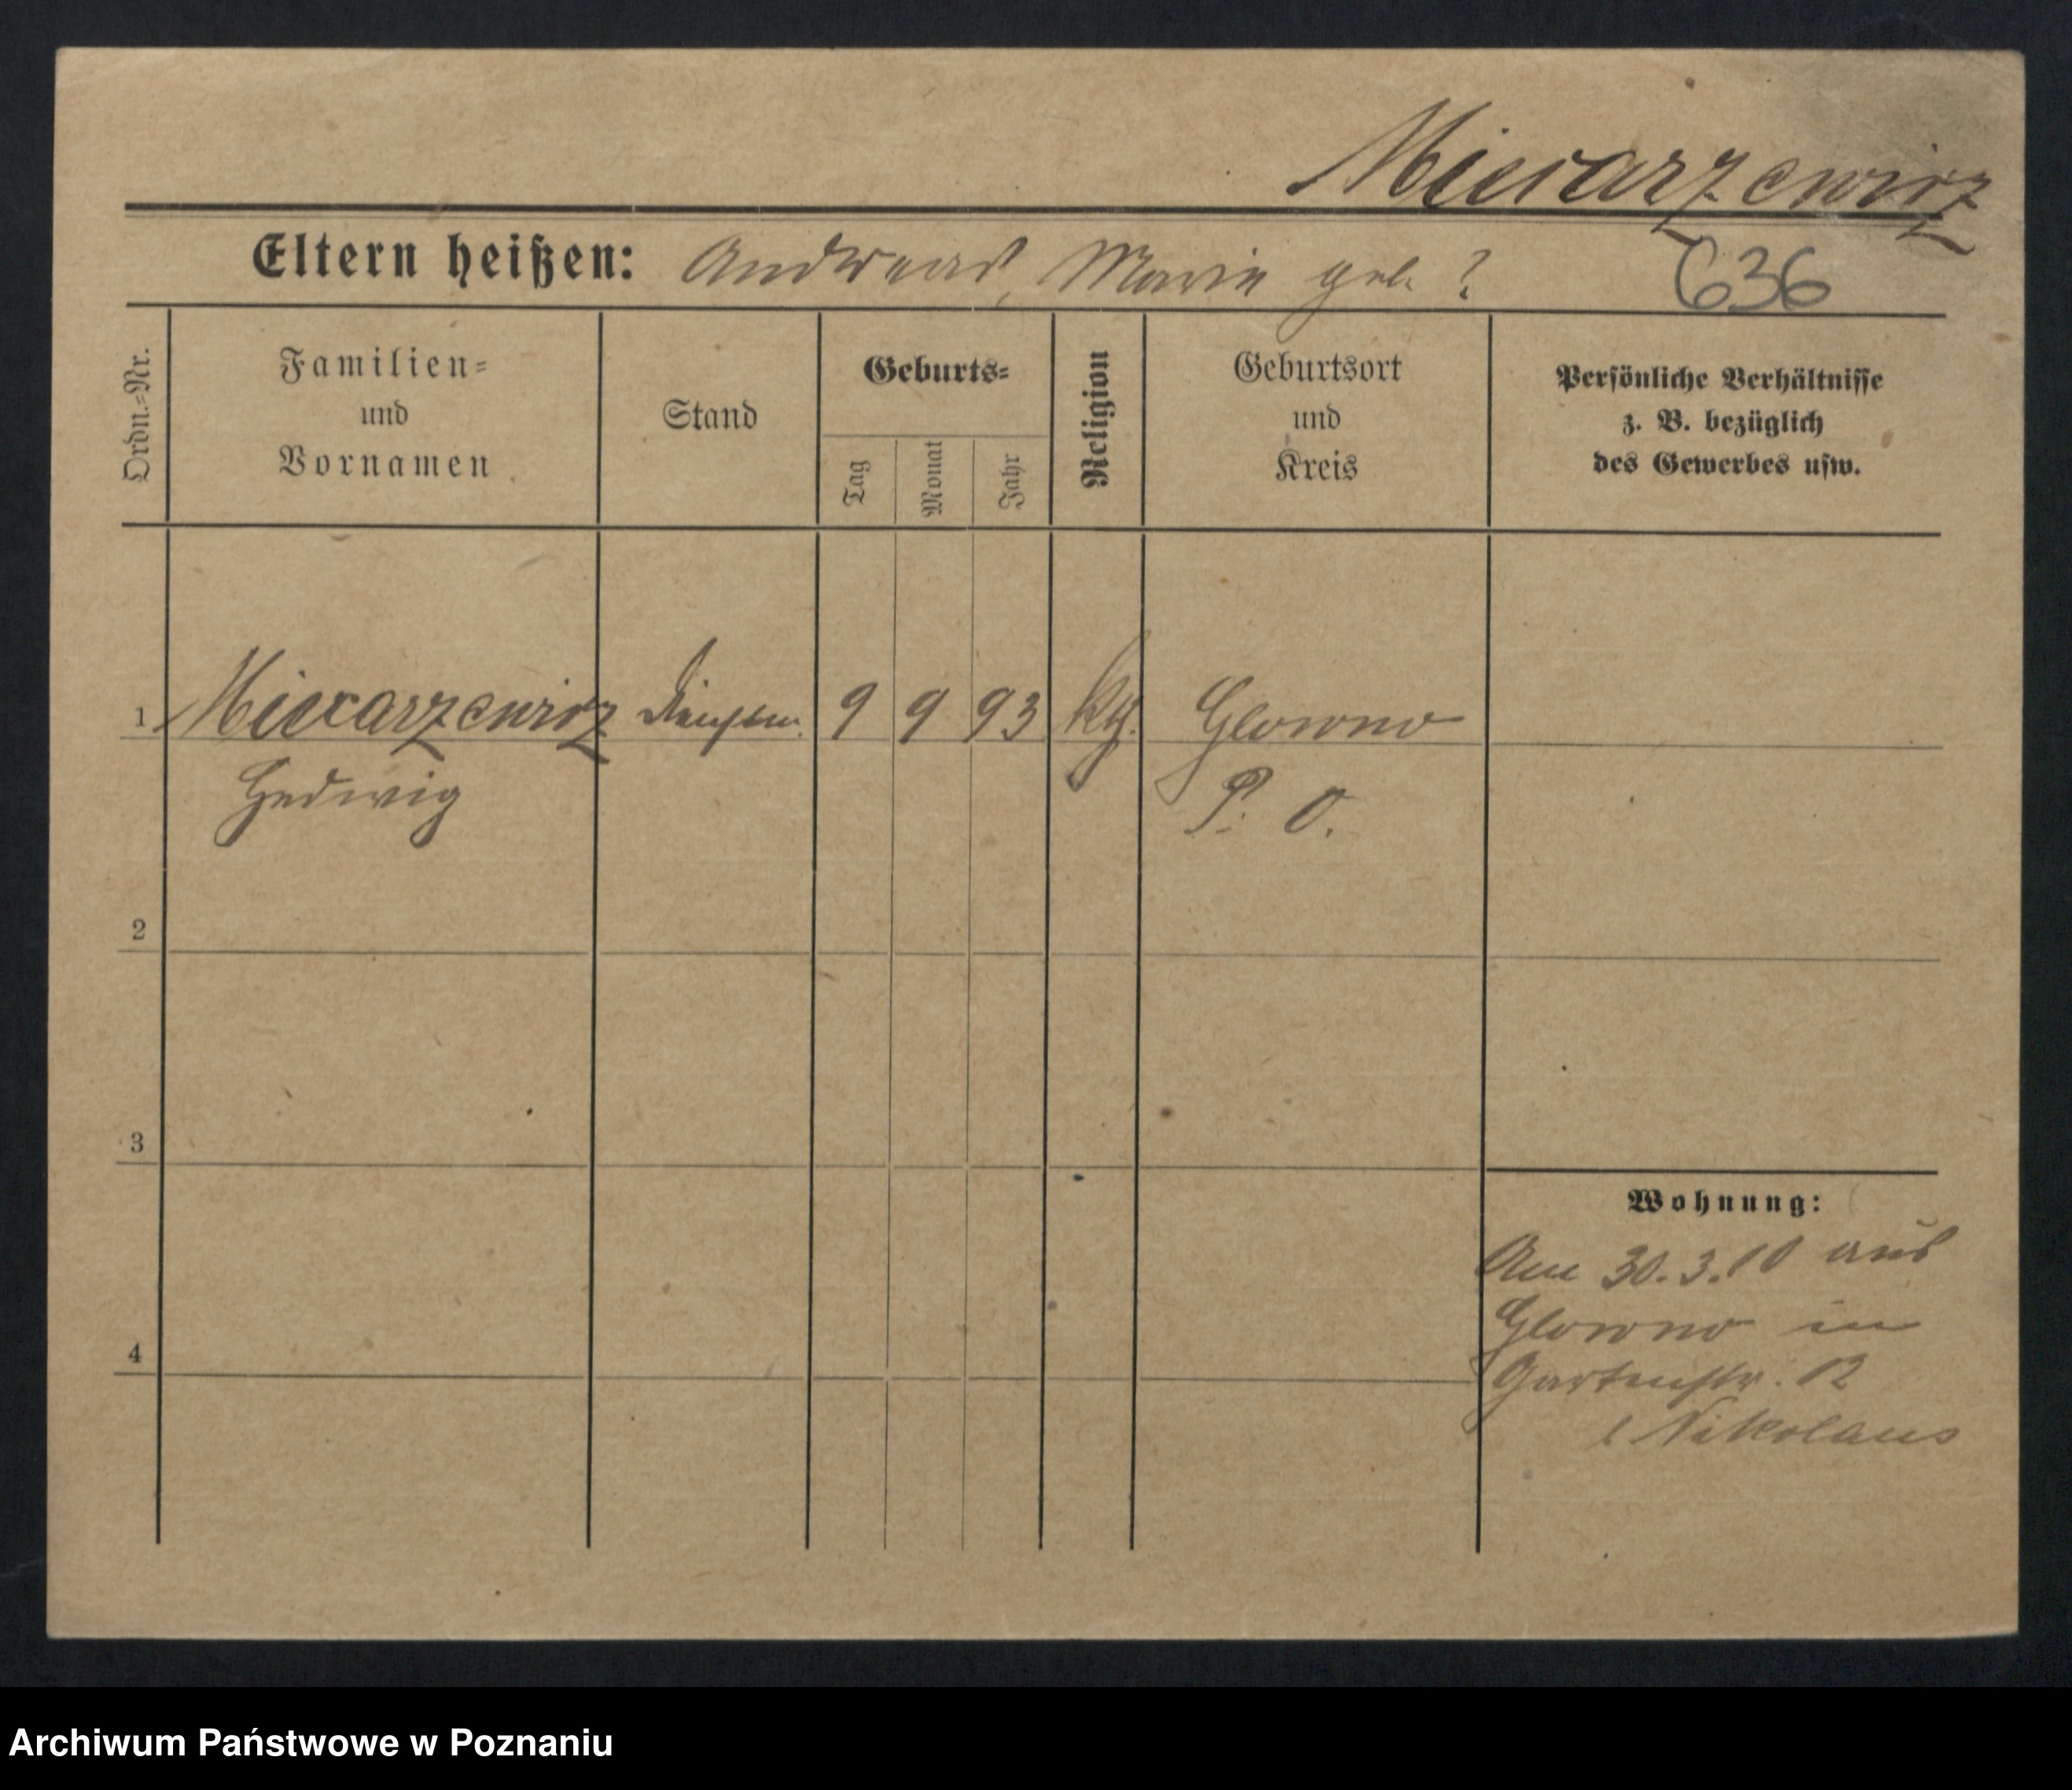 Miecarzewicz
Eltern heißen: Andreas, Marie geb. ?
636
Ordn.=Nr.
Familien=
und
Vornamen
Stand
Geburts=
Tag
Monat
Jahr
Religion
Geburtsort
und
Kreis
Persönliche Verhältnisse
z. B. bezüglich
des Gewerbes usw.
1 Miecarzewicz 9 9 93 kth. Glowno
Hedwig P. O.
2
3
4
Wohnung:
Am 30.3.10 aus
Glowno in
Gartenstr. 12
Nikolaus
Archiwum Państwowe w Poznaniu